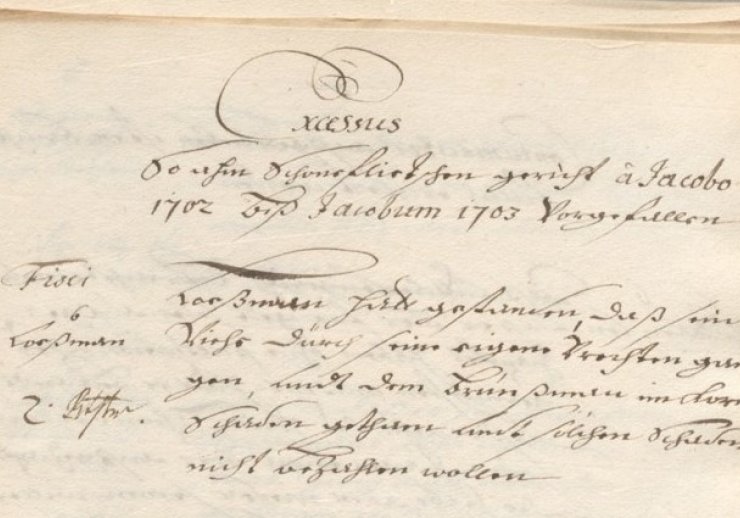 Excessus
So ahm Schoneflietschen gericht â Jacobo
1702 biß Jacobum 1703 Vorgefallen
Fisci
Loeßman
Loeßman hatt gestanden, daß sein
Viehe dürch seine eigene Vrechten gan
gen, undt dem Brünßman im Korn
Schaden gethan undt solchen Schaden
nicht bezahlen wollen
2.